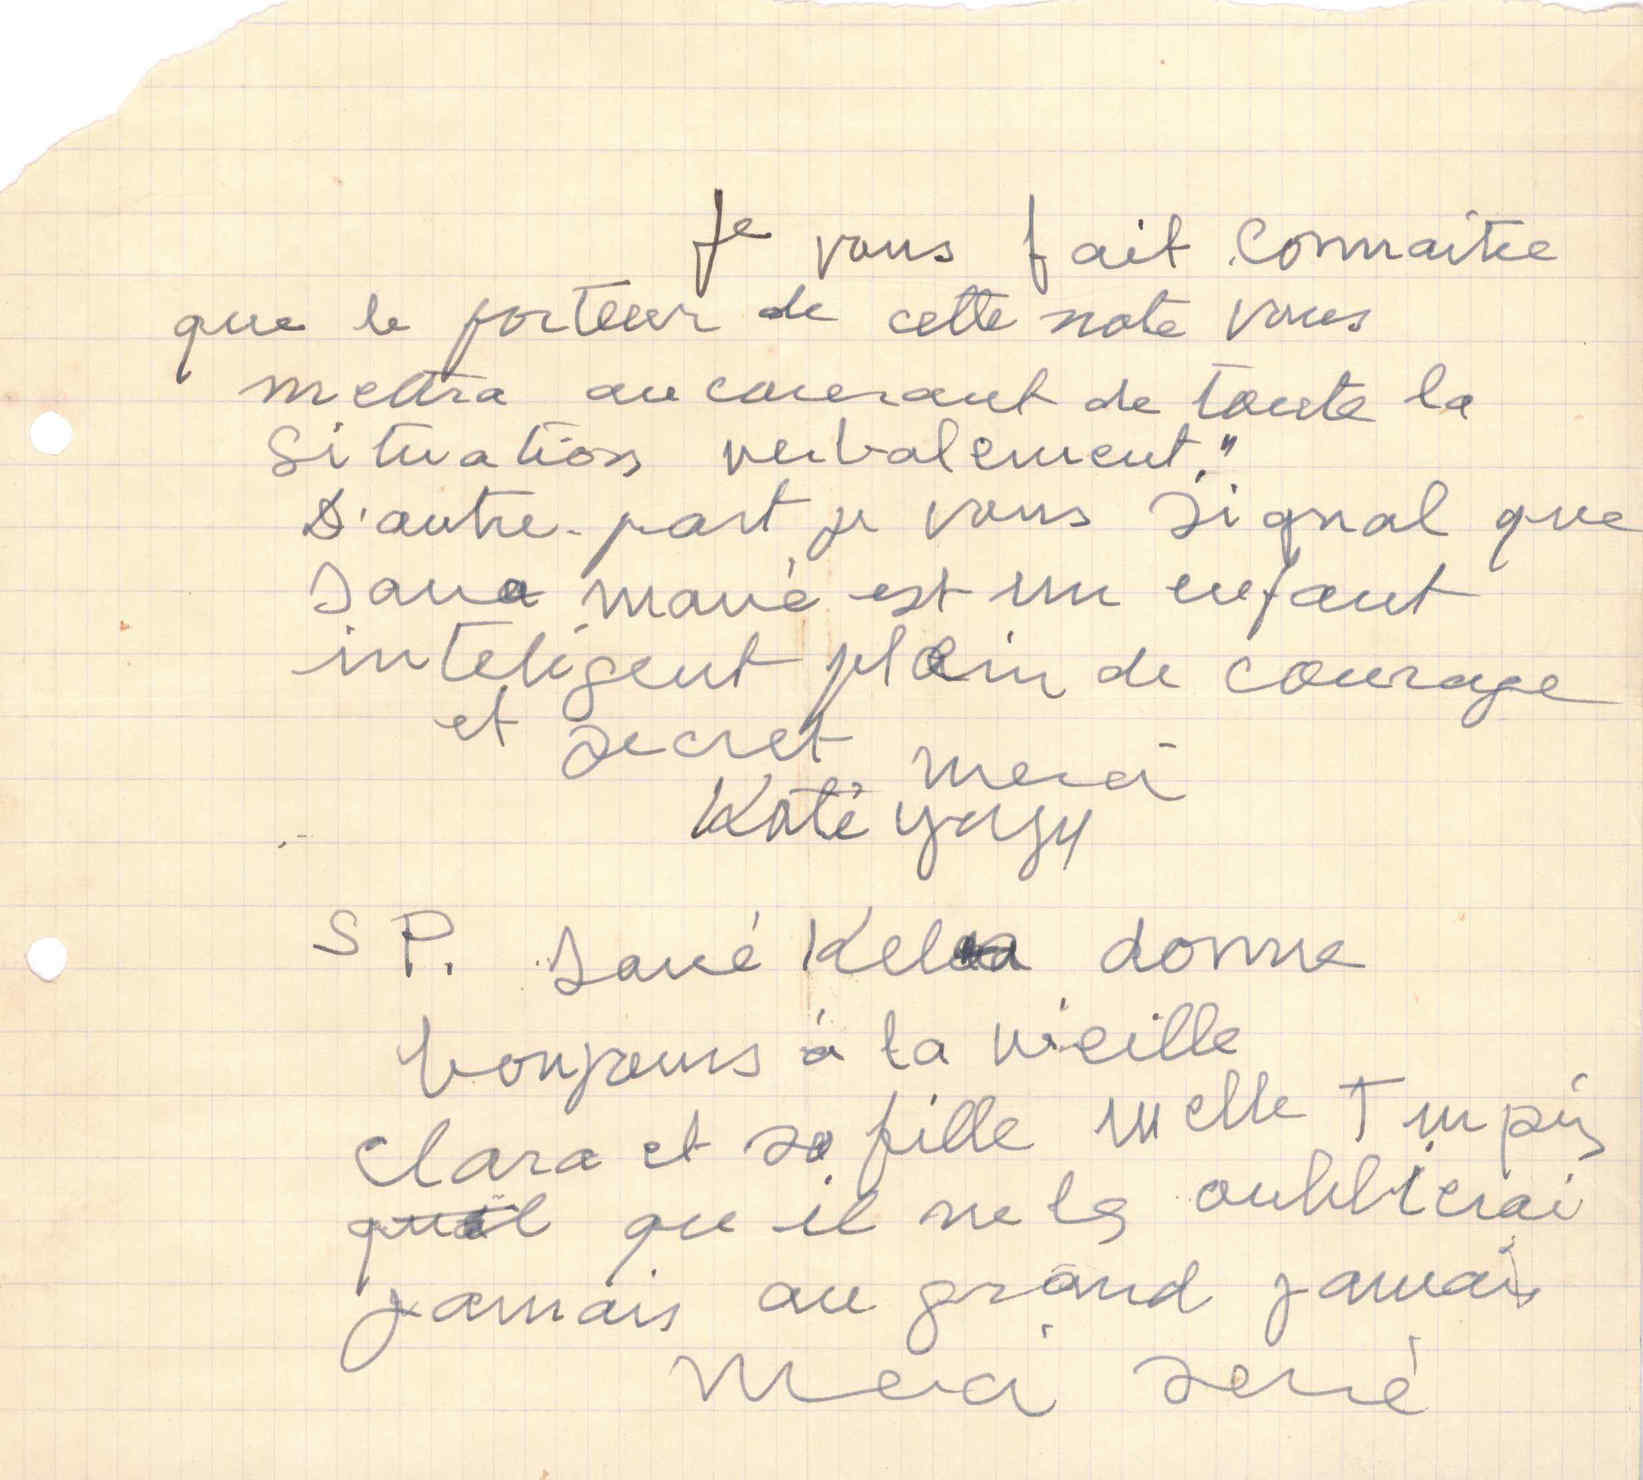 Je vous fait connaitre
que le porteur de cette note vous
mettra au courant de toute la
situation verbalement."
D'autre-part je vous signal que
sana mané est un enfant
inteligent plein de courage
et secret merci
Koté
S P. sané donne
bonjours à la vieille
clara et sa fille Melle
qu il ne les oublierai
jamais au grand jamais
Merci sané